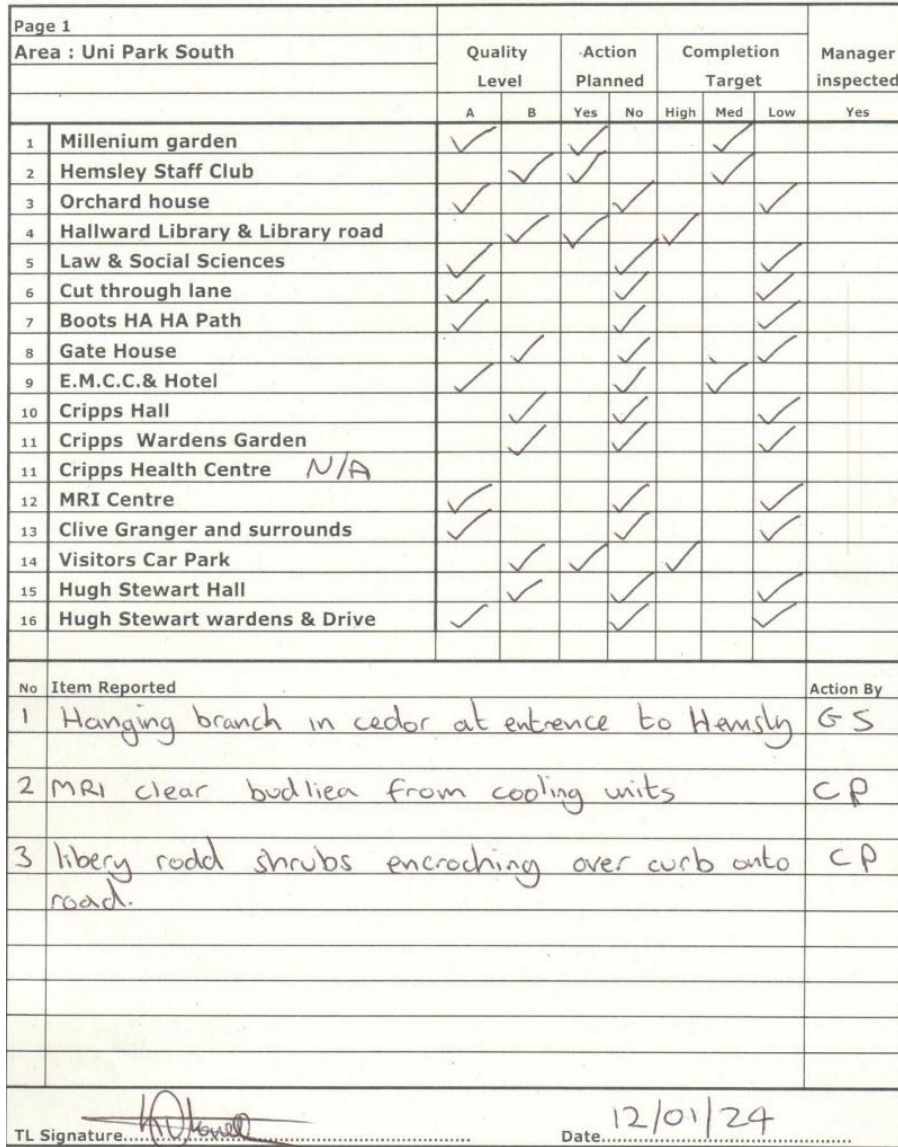 Page 1
Area : Uni Park South Quality Action Completion Manager
Level Planned Target inspected
A B Yes No High Med Low Yes
1 Millenium garden ✓ ✓ ✓
2 Hemsley Staff Club ✓ ✓ ✓
3 Orchard house ✓ ✓ ✓
4 Hallward Library & Library road ✓ ✓ ✓
5 Law & Social Sciences ✓ ✓ ✓
6 Cut through lane ✓ ✓ ✓
7 Boots HA HA Path ✓ ✓ ✓
8 Gate House ✓ ✓ ✓
9 E.M.C.C.& Hotel ✓ ✓ ✓
10 Cripps Hall ✓ ✓ ✓
11 Cripps Wardens Garden ✓ ✓ ✓
11 Cripps Health Centre N/A
12 MRI Centre ✓ ✓ ✓
13 Clive Granger and surrounds ✓ ✓ ✓
14 Visitors Car Park ✓ ✓ ✓
15 Hugh Stewart Hall ✓ ✓ ✓
16 Hugh Stewart wardens & Drive ✓ ✓ ✓
No Item Reported Action By
1 Hanging branch in cedor at entrence to Hemsly GS
2 MRI clear budliea from cooling units CP
3 libery rodd shrubs encroching over curb onto CP
road.
TL Signature Date 12/01/24